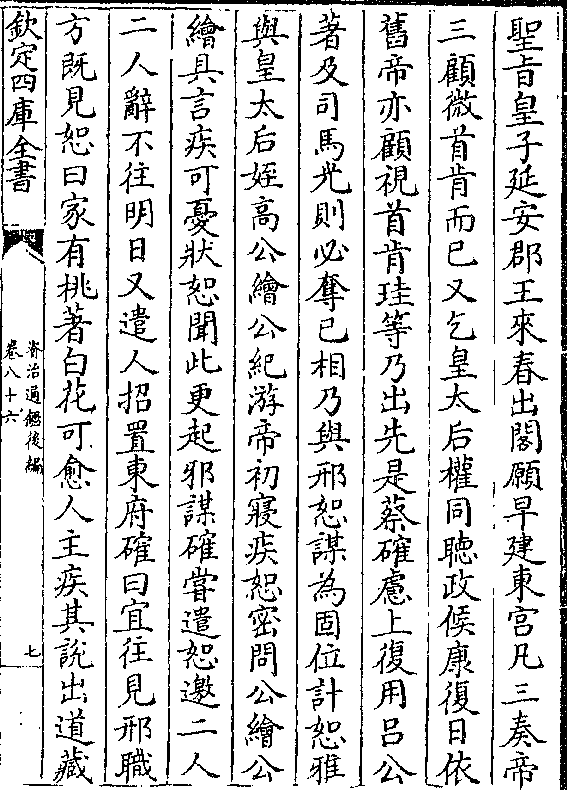 聖旨皇子延安郡王來春出閣願早建東宫凡三奏帝
三顧微首肯而已又乞皇太后權同聽政候康復日依
舊帝亦顧視首肯珪等乃出先是蔡確慮上復用吕公
著及司馬光則必奪己相乃與邢恕謀為固位計恕雅
與皇太后姪髙公繪公紀游帝初寢疾恕密問公繪公
繪具言疾可憂狀恕聞此更起邪謀確嘗遣恕邀二人
二人辭不往明日又遣人招置東府確曰宜往見邢職
方既見恕曰家有桃著白花可愈人主疾其説出道藏
欽定四庫全書
資治通鑑後編
卷八十六
七